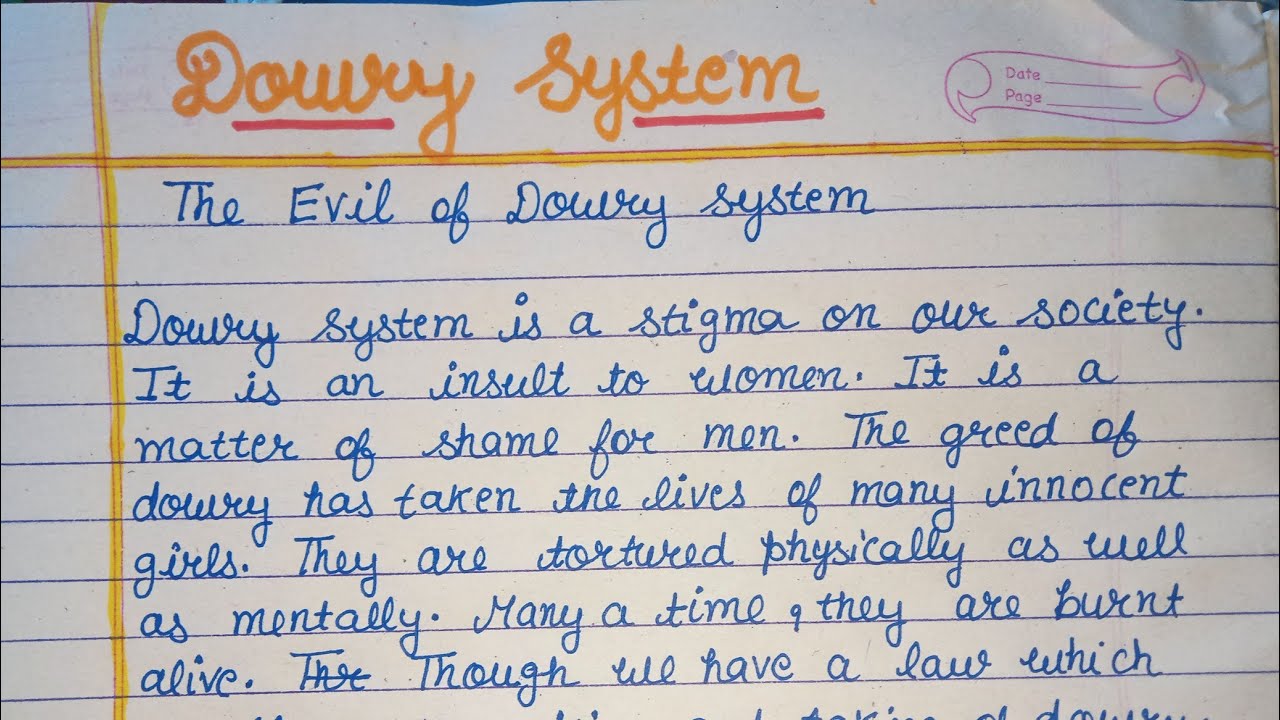 Dowry System
Date
Page
The Evil of Dowry system
Dowry system is a stigma on our society.
It is an insult to women. It is a
matter of shame for men. The greed of
dowry has taken the lives of many innocent
girls. They are tortured physically as well
as mentally. Many a time, they are burnt
alive. Though we have a law which
taking of dowry